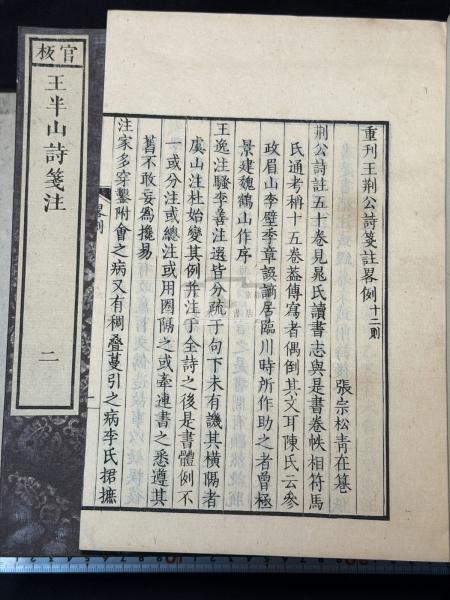 重刋王荆公詩箋註畧例十二則
張宗松青在篹
荆公詩註五十卷見晁氏讀書志與是書卷帙相符馬
氏通考稱十五卷葢傳寫者偶倒其文耳陳氏云叅
政眉山李壁季章譔謫居臨川時所作助之者曾極
景建魏鶴山作序
王逸注騷李善注選皆分疏于句下未有譏其橫隔者
虞山注杜始變其例并注于全詩之後是書體例不
一或分注或總注或用圈隔之或牽連書之悉遵其
舊不敢妄爲攙易
注家多穿鑿附會之病又有稠疊蔓引之病李氏捃摭
畧例
一
官板
王半山詩箋注
二